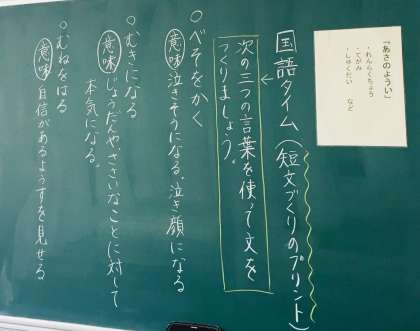 「あさのようい」
・れんらくちょう
・てがみ
・しゅくだい など
国語タイム(短文づくりのプリント)
次の三つの言葉を使って文を
つくりましょう。
○べそをかく
意味 泣きそうになる。泣き顔になる
○むきになる
意味 じょうだんや、ささいなことに対して
本気になる。
○むねをはる
意味 自信があるようすを見せる